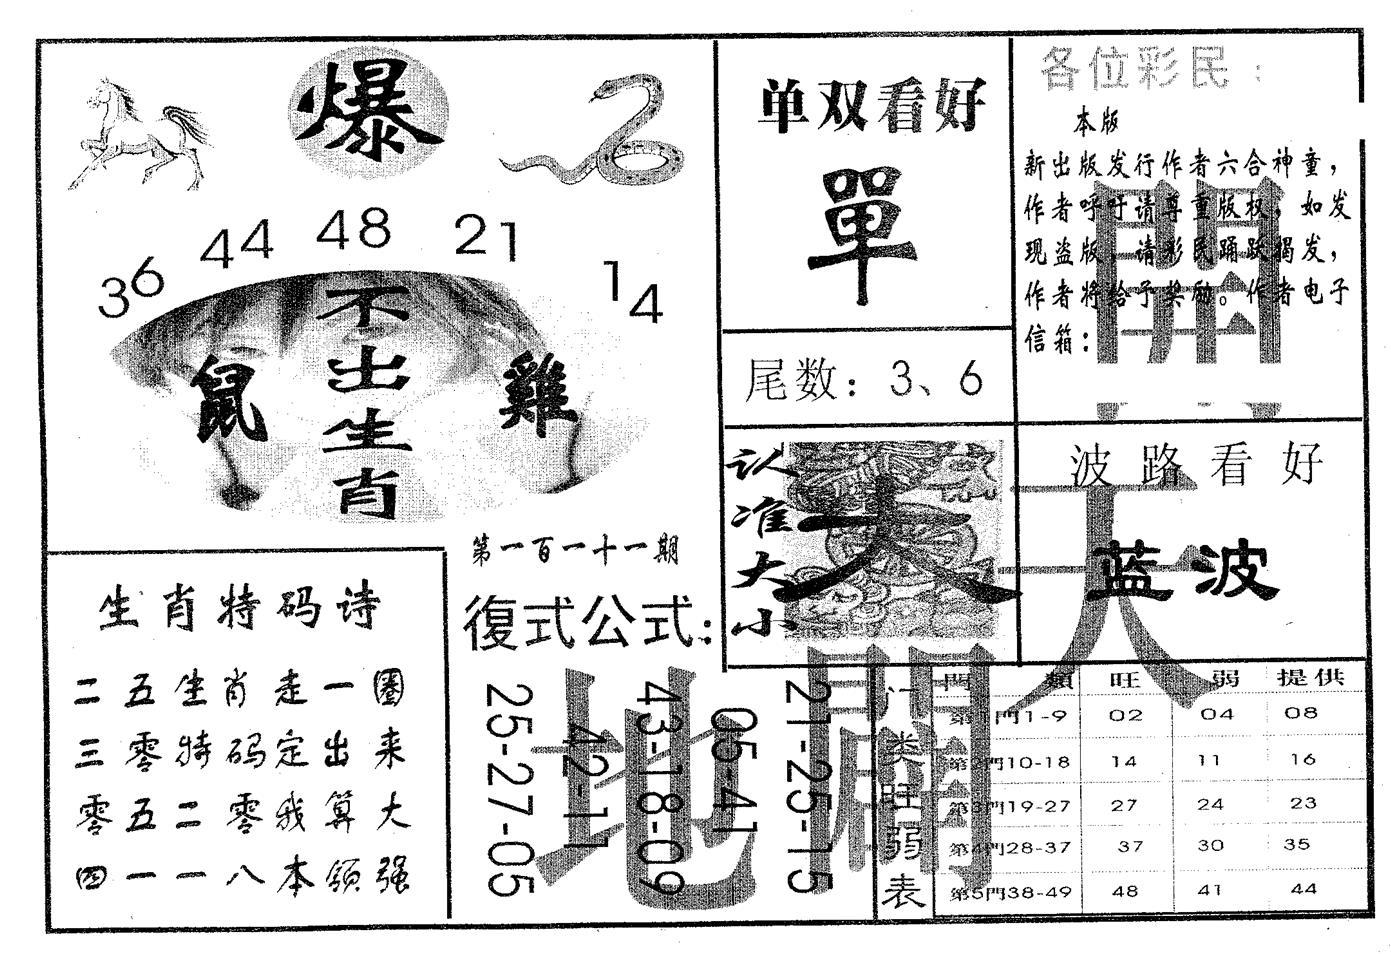 爆
36 44 48 21 14
不出生肖
鼠 雞
第一百一十一期
单双看好
單
尾数：3、6
各位彩民：
本版
新出版发行作者六合神童，
作者呼吁请尊重版权，如发
现盗版，请彩民踊跃揭发，
作者将给予奖励。作者电子
信箱：
認准大小
大
波路看好
蓝波
生肖特码诗
二五生肖走一圈
三零特码定出来
零五二零我算大
四一一八本领强
復式公式：
25-27-05
42-11
43-18-09
05-41
21-25-15
天
地
開
開
门类旺弱表
門類 旺 弱 提供
第1門1-9 02 04 08
第2門10-18 14 11 16
第3門19-27 27 24 23
第4門28-37 37 30 35
第5門38-49 48 41 44